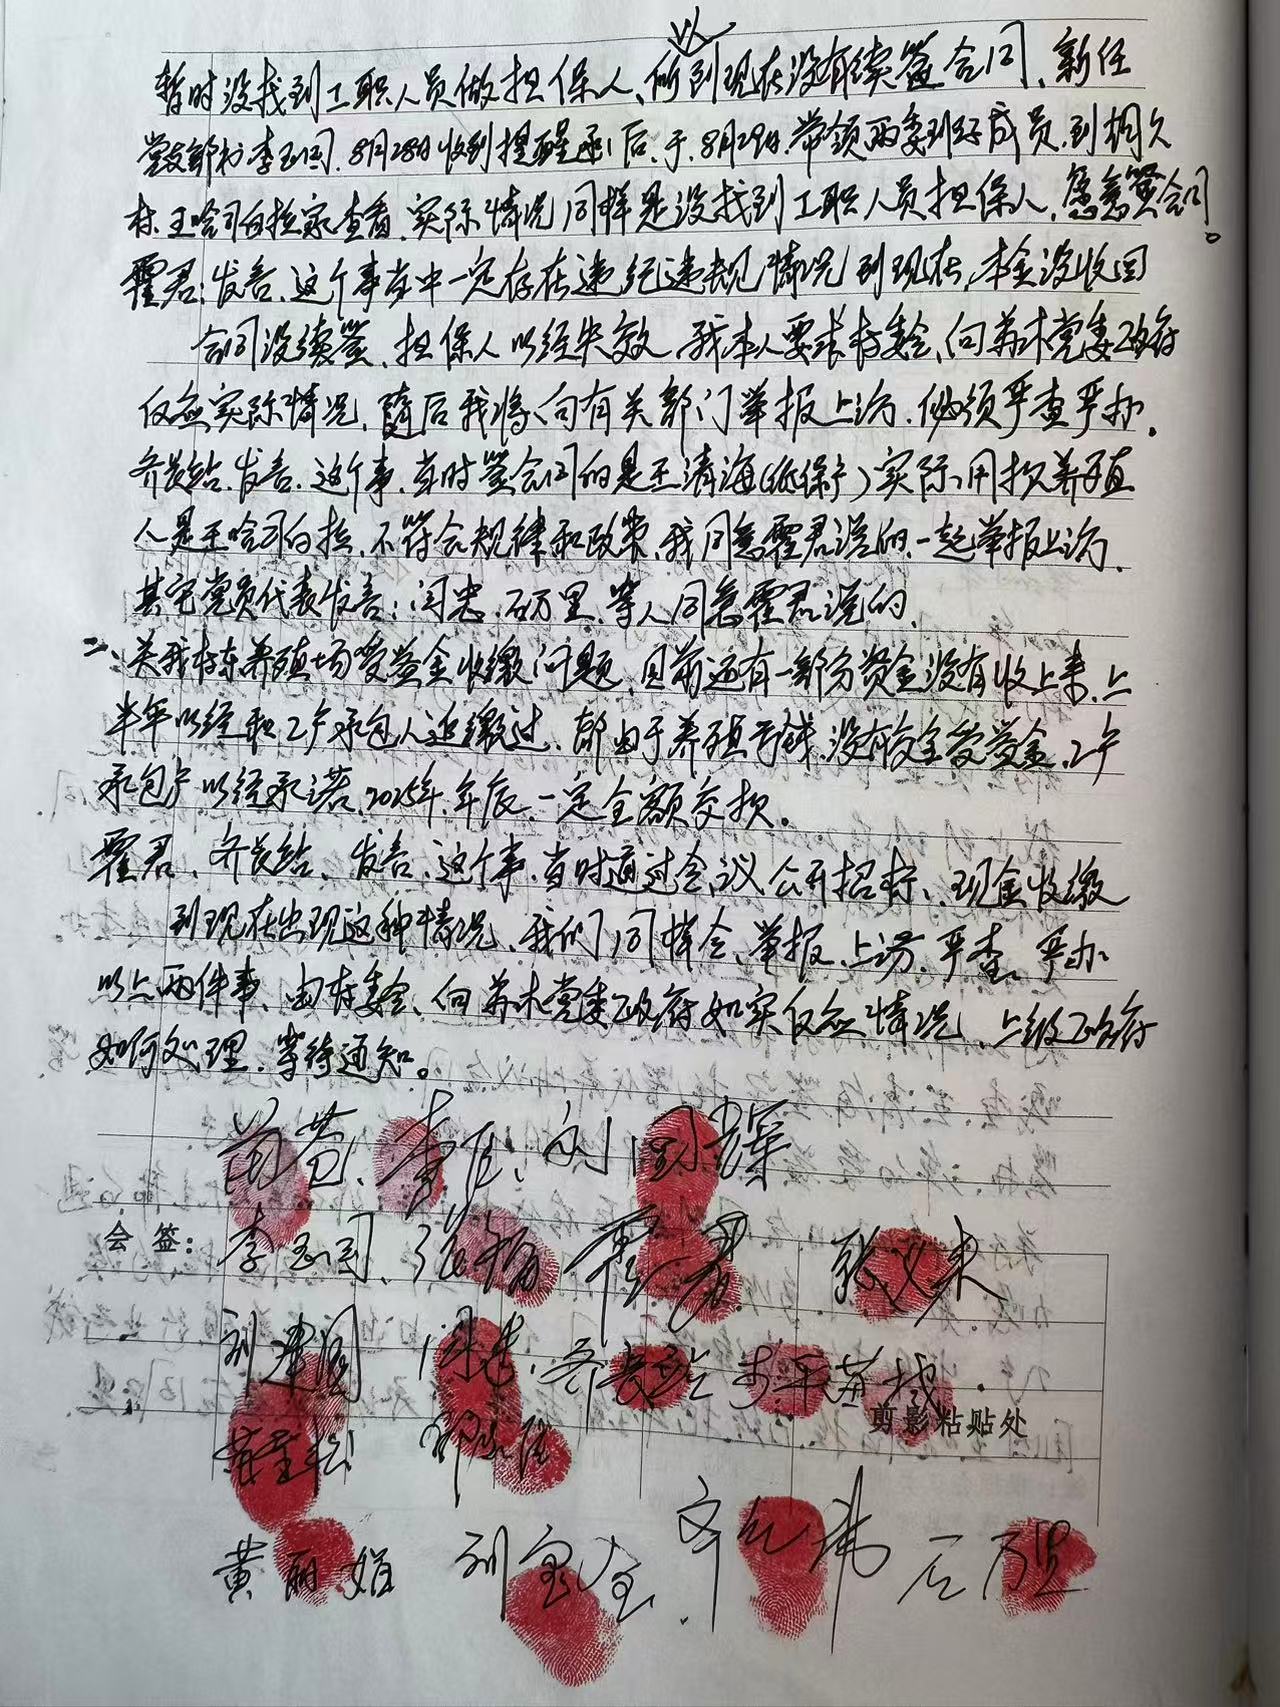 以
暂时没找到工职人员做担保人、所到现在没有续签合同、新任
党支部书李玉同.8月28日收到提醒函后、于、8月29日.带领两委班子成员.到胡久
村.王哈司白拉家查看.实际情况同样是没找到工职人员担保人、愿意签合同。
霍君:发言、这个事当中一定存在违纪违规情况到现在,本金没收回
合同没续签、担保人以经失效.我本人要求村委会、向苏木党委政府
反应实际情况、随后我将、向有关部门举报上访.必须严查严办。
齐长站.发言.这个事.当时签合同的是王清海(低保户)实际、用款养殖
人是王哈司白拉.不符合规律和政策、我同意霍君说的、一起举报上访.
其它党员代表发言:闫忠.石万里.等人同意霍君说的.
二、关我村东养殖场受益金收缴问题、目前还有一部分资金没有收上来.上
半年以经和.2户承包人追缴过、都由于养殖亏钱.没有交全受益金.2户
承包户以经承诺.2025年.年底.一定全额交款。
霍君、齐长站、发言、这个事.当时通过会议公开招标、现金收缴
到现在出现这种情况、我们同样会、举报、上访.严查、严办
以上两件事、由村委会、向苏木党委政府如实反应情况、上级政府
如何处理.等待通知。
会签: 李玉同、张 霍君
刘建国 闫忠. 齐长站
剪影粘贴处
黄丽娟 刘宝金. 石万里